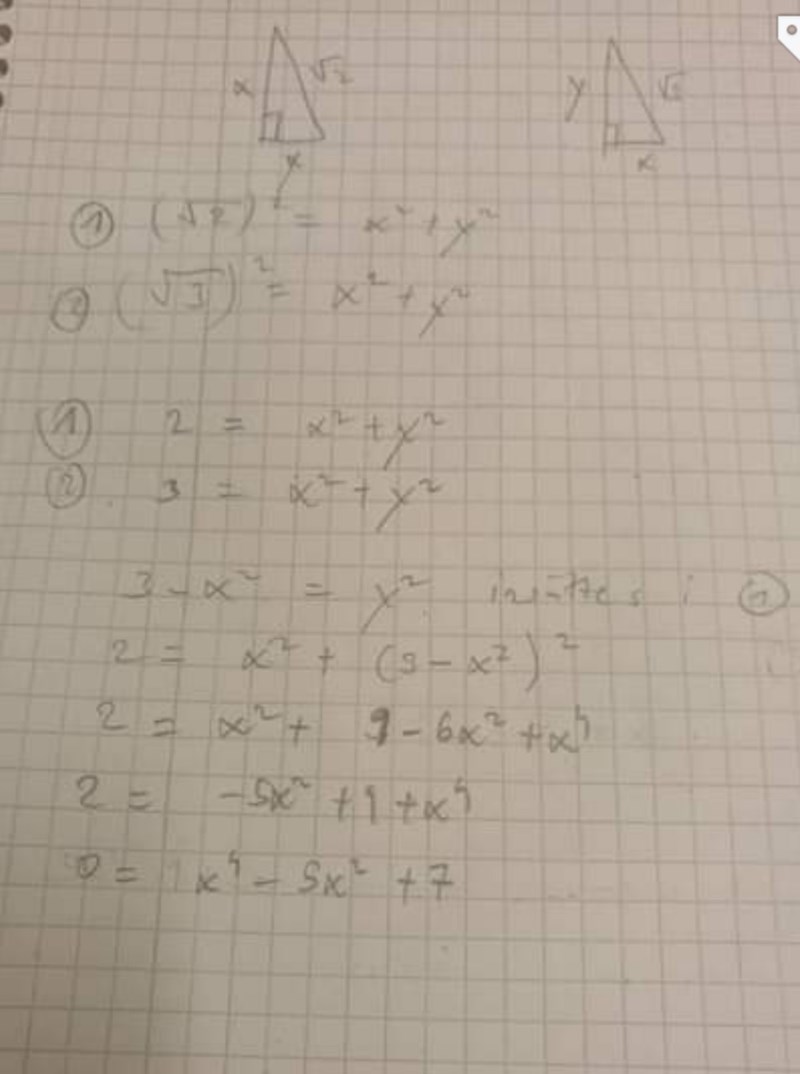 x √2 y √3
y x
① (√2)² = x² + y²
② (√3)² = x² + y²
① 2 = x² + y²
② 3 = x² + y²
3 - x² = y²
2 = x² + (3 - x²)²
2 = x² + 9 - 6x² + x⁴
2 = -5x² + 9 + x⁴
0 = x⁴ - 5x² + 7